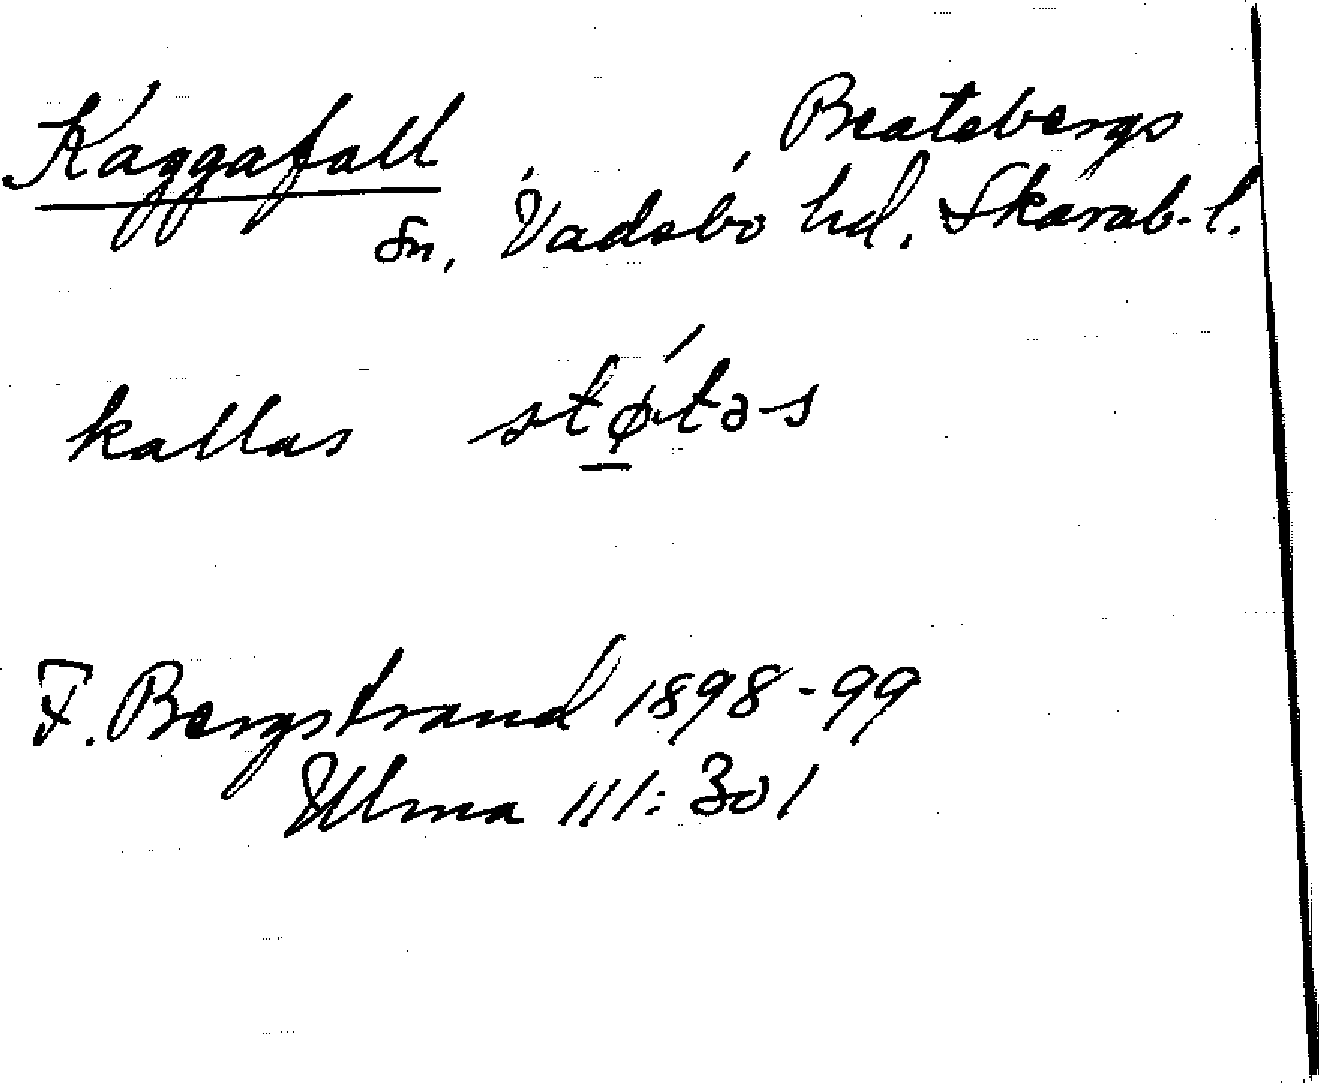 Kaggafall, Beatebergs
sn, Vadsbo hd, Skarab. l.
kallas støtəs
F. Bergstrand 1898-99
Ulma 111:301